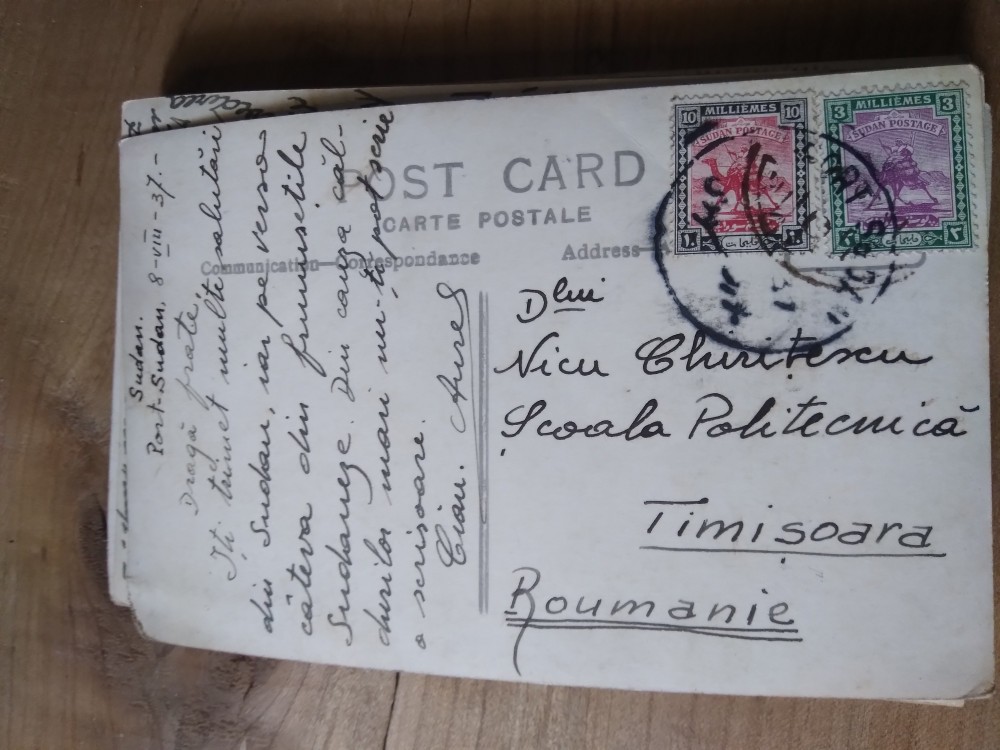 POST CARD
CARTE POSTALE
Communication—Correspondance
Address
Sudan.
Port-Sudan. 8-VIII-37.-
Dragă frate,
Îți trimet multe salutări
din Sudan, iar pe verso
câteva din frumusețile
Sudaneze. Din cauza căl-
durilor mari nu-ți pot scrie
o scrisoare.
Ciau. Aurel
Dlui
Nicu Chirițescu
Școala Politecnică
Timișoara
Roumanie
10 MILLIÈMES 10
SUDAN POSTAGE
3 MILLIÈMES 3
SUDAN POSTAGE